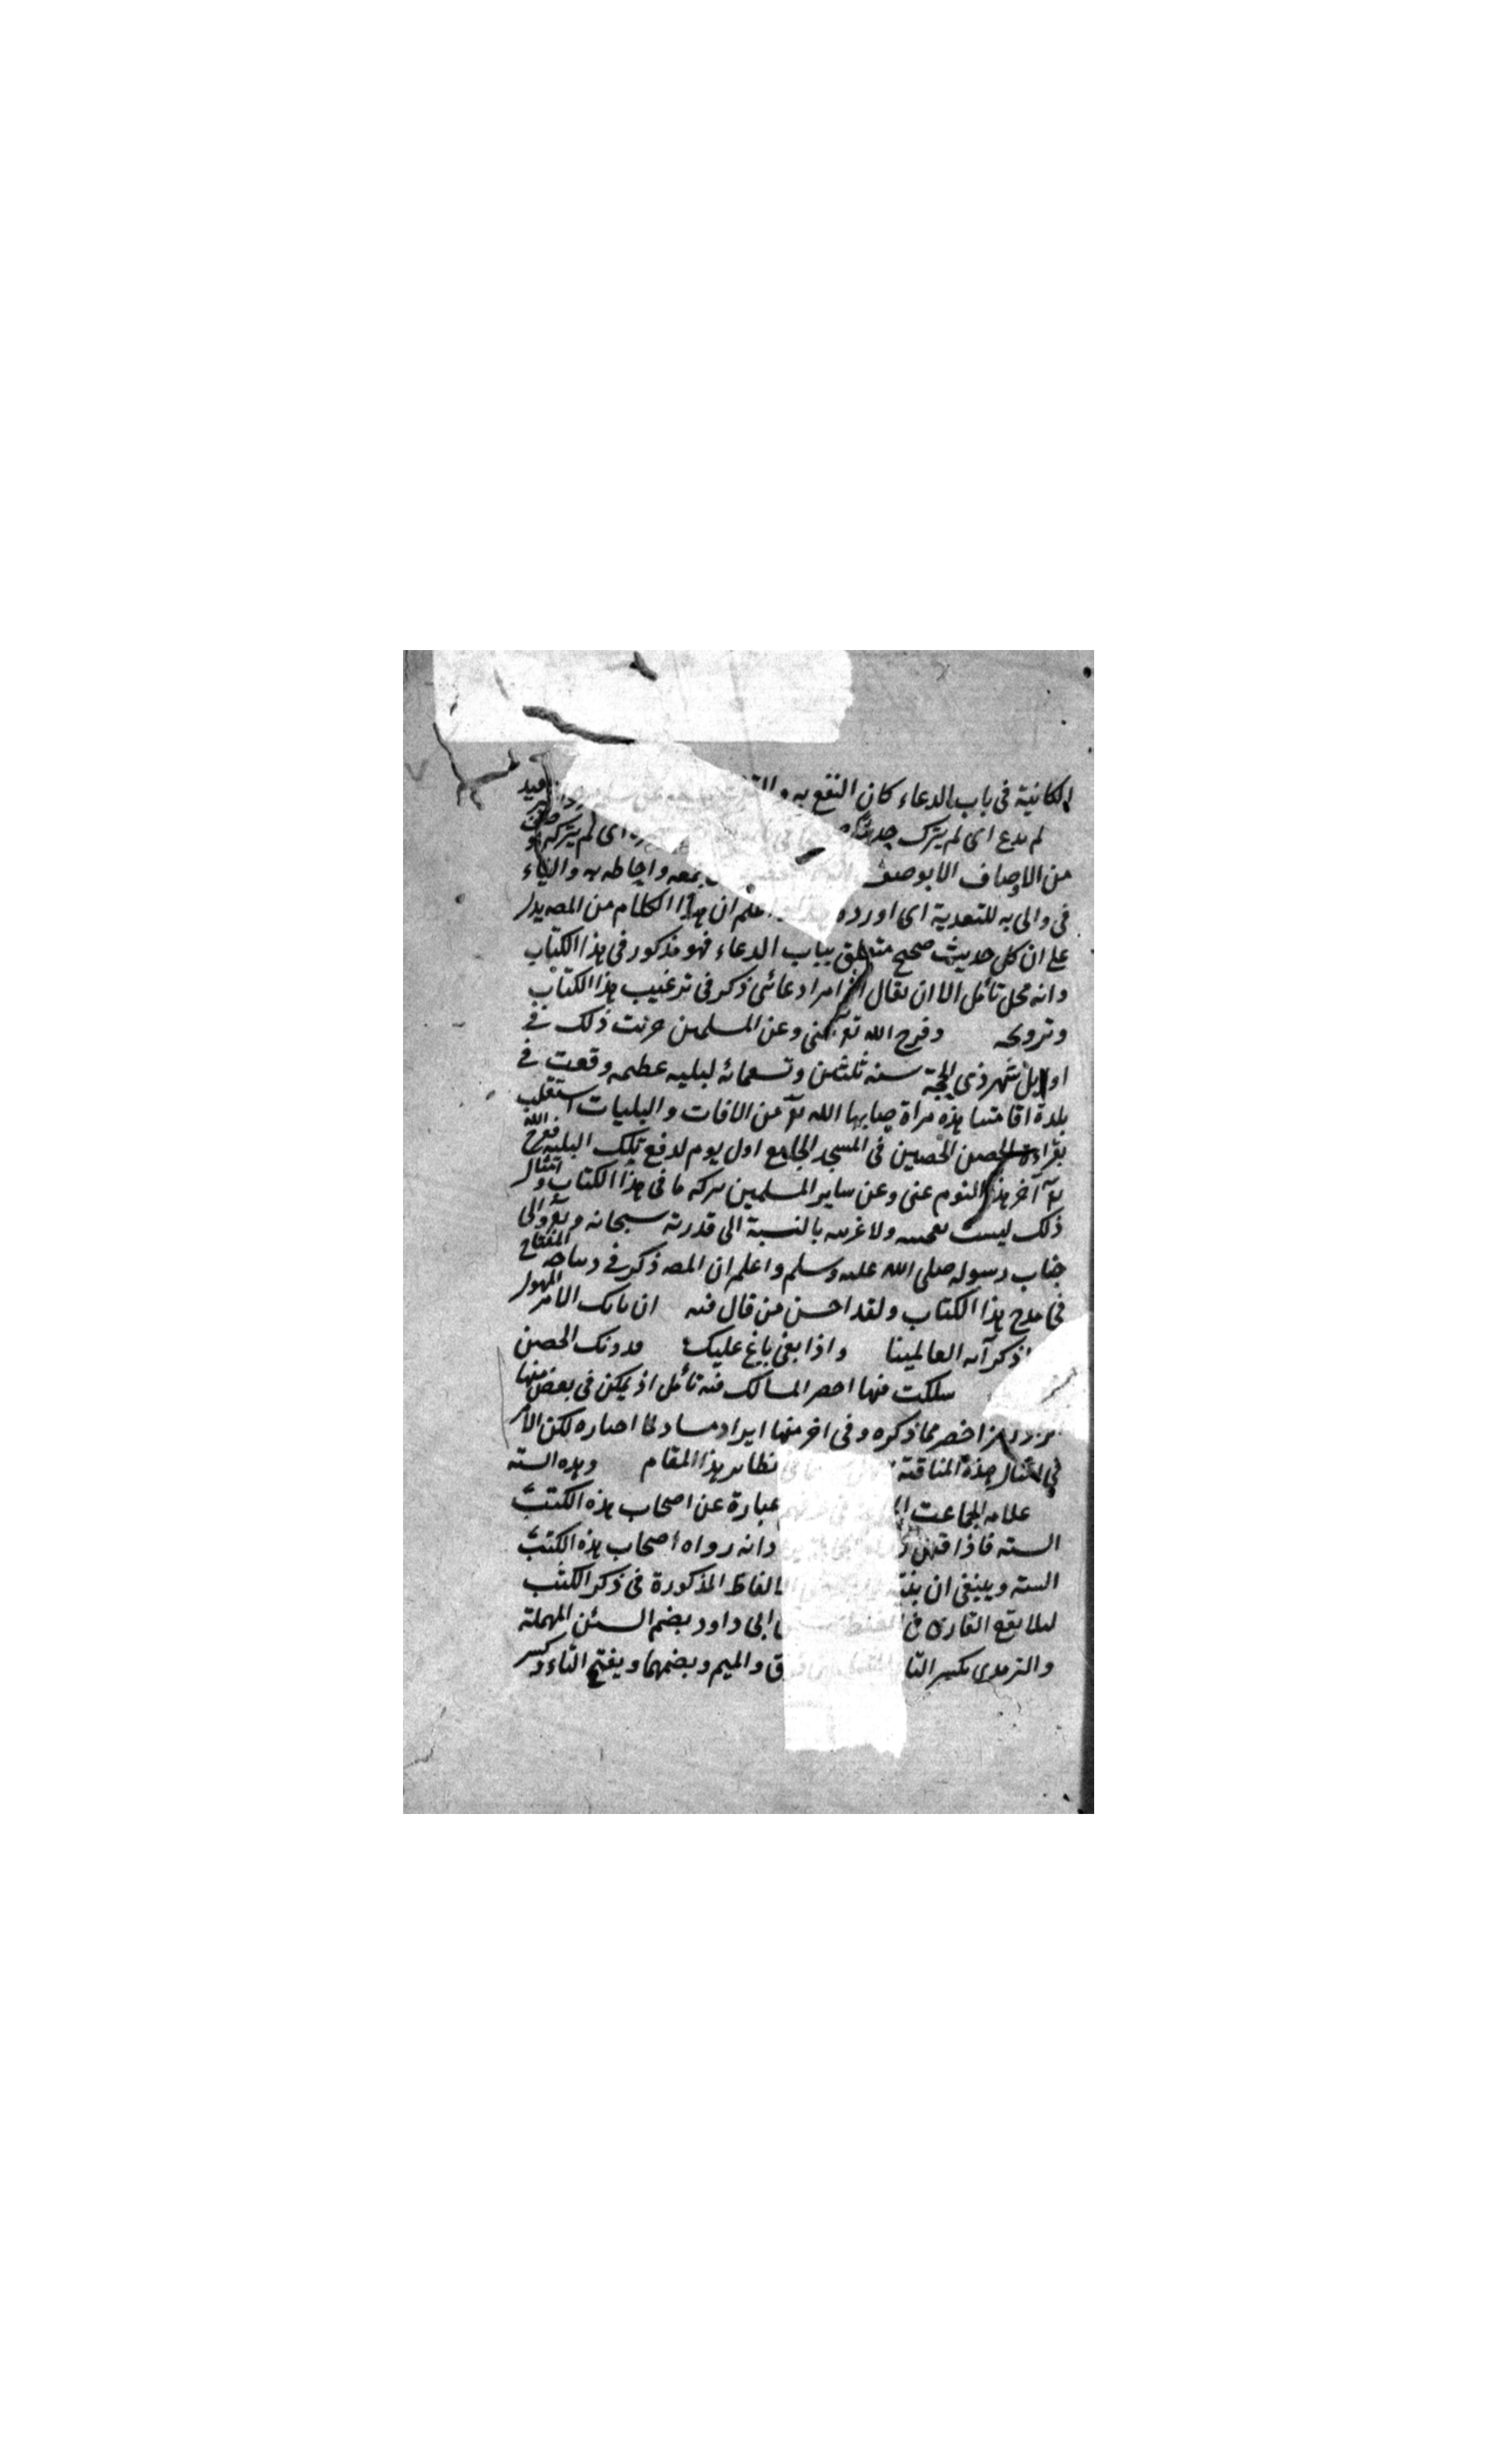 الكانية فى باب الدعاء كان النفع به و
لم يدع اى لم يترك اى لم يتركه
من الاوصاف الا بوصف جمعه واحاطه به والباء
فى والى به للتعدية اى اورده اعلم ان هذا الكلام من المصه يدل
على ان كل حديث صحيح متعلق بباب الدعاء فهو مذكور فى هذا الكتاب
وانه محل تأمل الا ان يقال امر ادعائى ذكر فى ترغيب هذا الكتاب
وترويجه وفرج الله تع عنى وعن المسلمين حزنت ذلك فى
اوايل شهر ذى الحجة سنه ثلثين وتسعمائة لبليه عظيمه وقعت فى
بلدة اقامتنا هذه مراة صانها الله تع من الافات والبليات
بقراءة الحصن الحصين فى المسجد الجامع اول يوم لدفع تلك البليه ففرج الله
تع آخر هذا اليوم عنى وعن ساير المسلمين ببركه ما فى هذا الكتاب وامثال
ذلك ليست بعجيبه ولا غريبه بالنسبة الى قدرته سبحانه وتع والى
جناب رسوله صلى الله عليه وسلم واعلم ان المصه ذكر فى ديباجه المفتاح
فى مدح هذا الكتاب ولقد احسن من قال فيه ان نابك الامر المهول
اذكر آله العالمينا واذا بغى باغ عليك فدونك الحصن
سلكت فيها اخصر المسالك فيه تأمل اذ يمكن فى بعض منها
اخصر مما ذكره وفى اخر منها ايراد مساو لما اختاره لكن الامر
فى امثال هذه المناقشة نظاير هذا المقام وهذه السته
علامه الجماعت عبارة عن اصحاب هذه الكتب
السته فاذا قيل وانه رواه اصحاب هذه الكتب
السته وينبغى ان الالفاظ المذكورة فى ذكر الكتب
ليلا يقع القارى فى الغلط ابى داود بضم السين المهملة
والترمدى بكسر التاء والميم وبضمهما وبفتح التاء وكسر